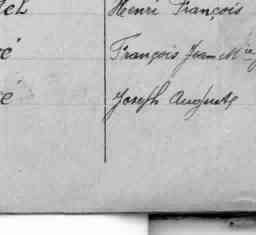 Henri François
François Jean Mie
Joseph Auguste